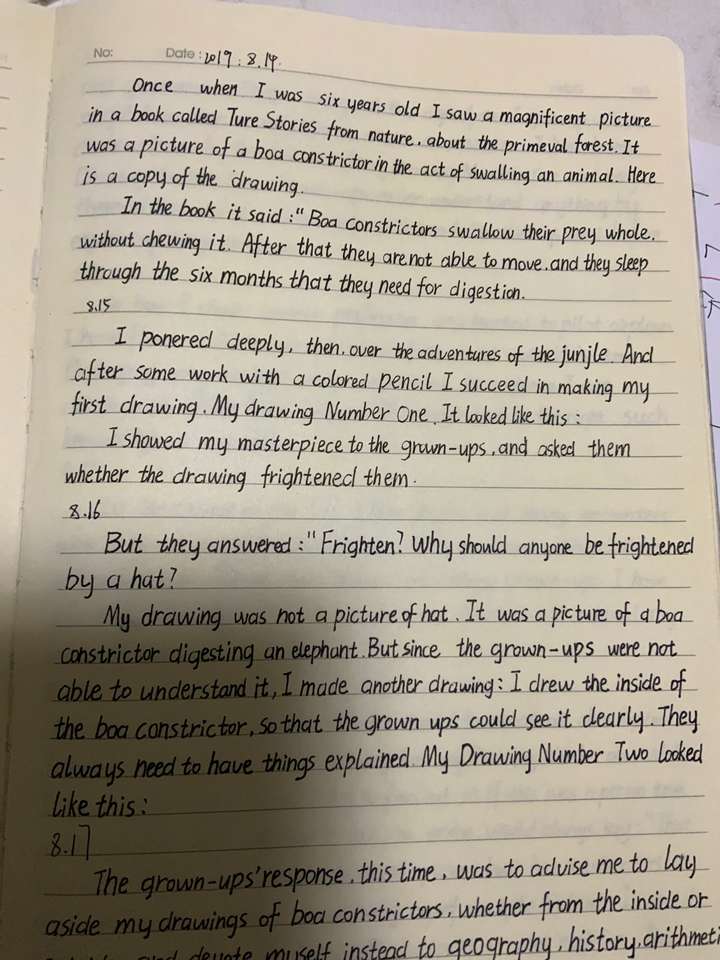 No: Date: 2019.8.14.
Once when I was six years old I saw a magnificent picture
in a book called Ture Stories from nature, about the primeval forest. It
was a picture of a boa constrictor in the act of swalling an animal. Here
is a copy of the drawing.
In the book it said :"Boa constrictors swallow their prey whole.
without chewing it. After that they are not able to move.and they sleep
through the six months that they need for digestion.
8.15
I ponered deeply, then. over the adventures of the junjle. And
after some work with a colored pencil I succeed in making my
first drawing. My drawing Number One. It looked like this :
I showed my masterpiece to the grown-ups, and asked them
whether the drawing frightened them.
8.16
But they answered :"Frighten? Why should anyone be frightened
by a hat?
My drawing was not a picture of hat. It was a picture of a boa
constrictor digesting an elephant. But since the grown-ups were not
able to understand it, I made another drawing: I drew the inside of
the boa constrictor, so that the grown ups could see it clearly. They
always need to have things explained. My Drawing Number Two looked
like this :
8.17
The grown-ups' response, this time, was to advise me to lay
aside my drawings of boa constrictors, whether from the inside or
and devote myself instead to geography, history, arithmeti